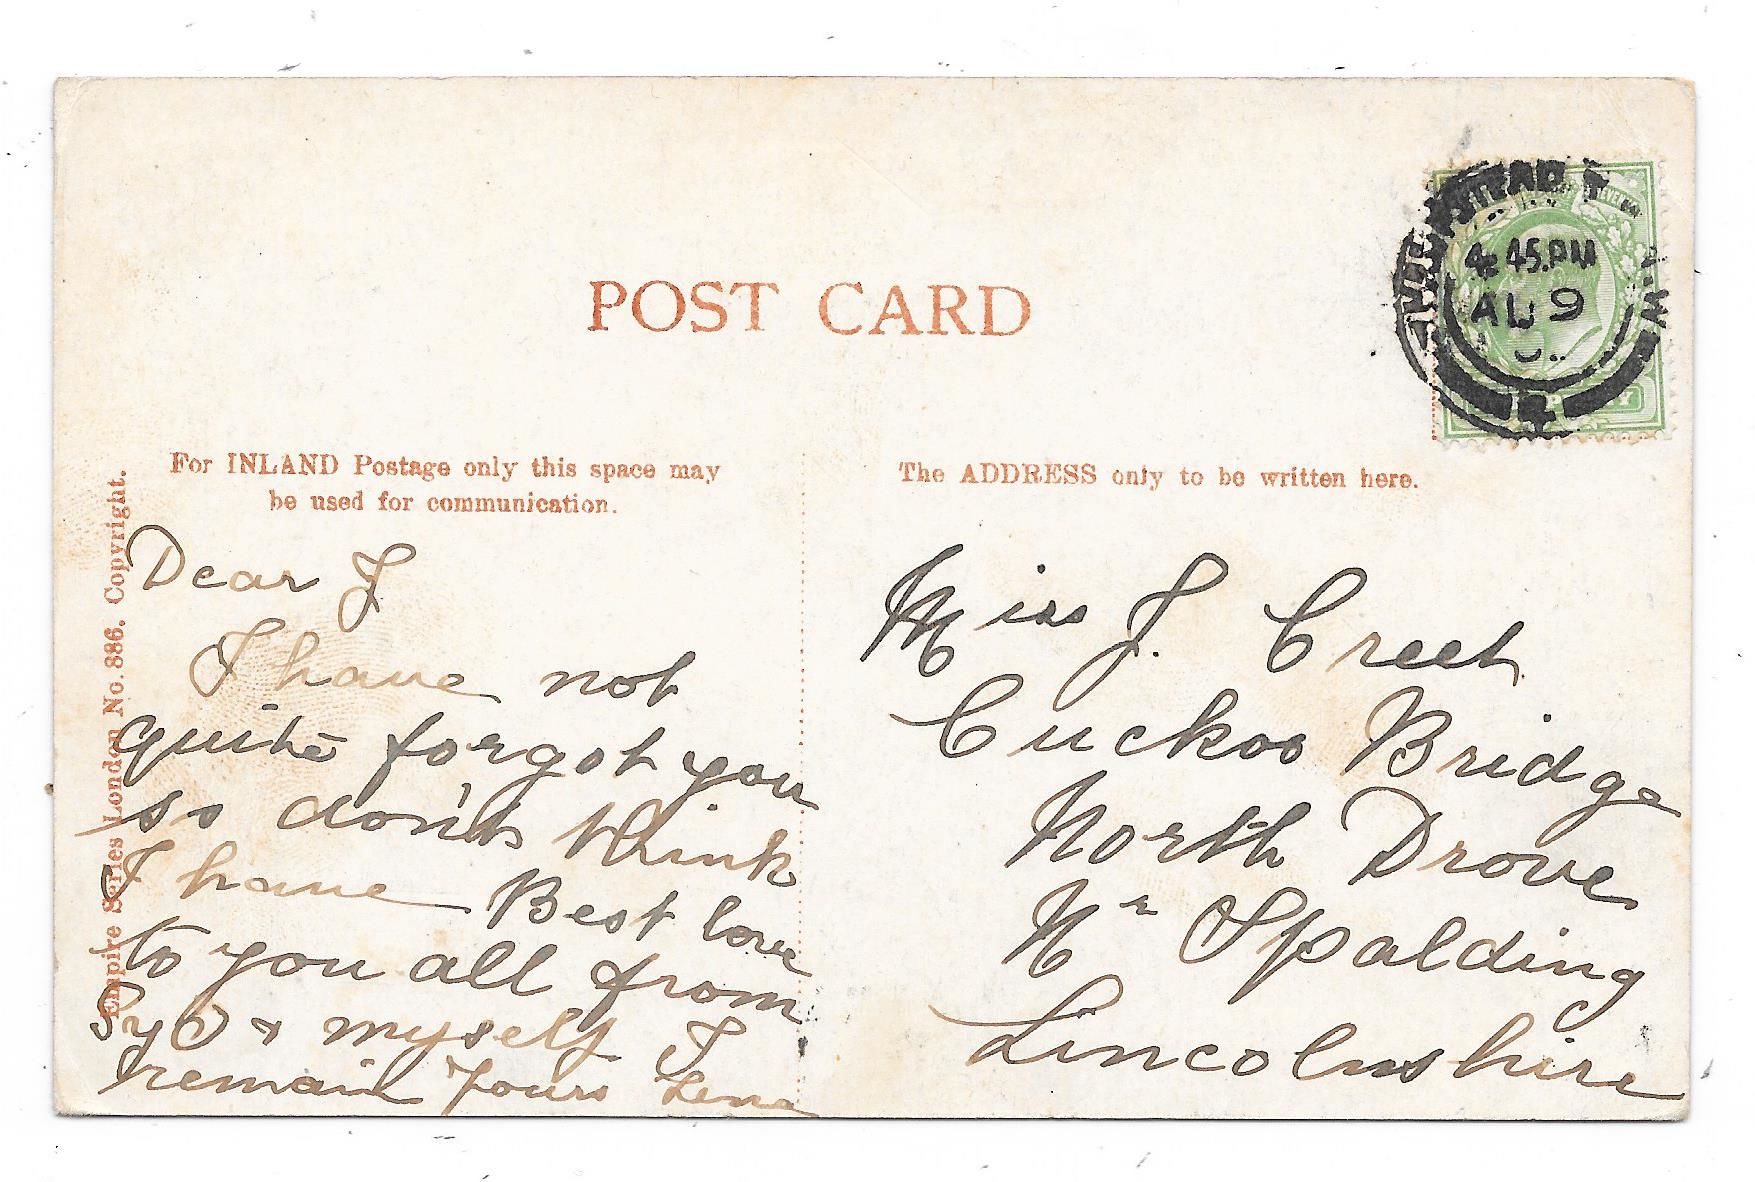 POST CARD
For INLAND Postage only this space may
be used for communication.
The ADDRESS only to be written here.
Empire Series London No. 886. Copyright.
4.45.PM
AU 9
Dear J
I have not
quite forgot you
so don't think
I have Best love
to you all from
Syd & myself I
remain Yours Lena
Miss J. Creek
Cuckoo Bridge
North Drove
Nr Spalding
Lincolnshire